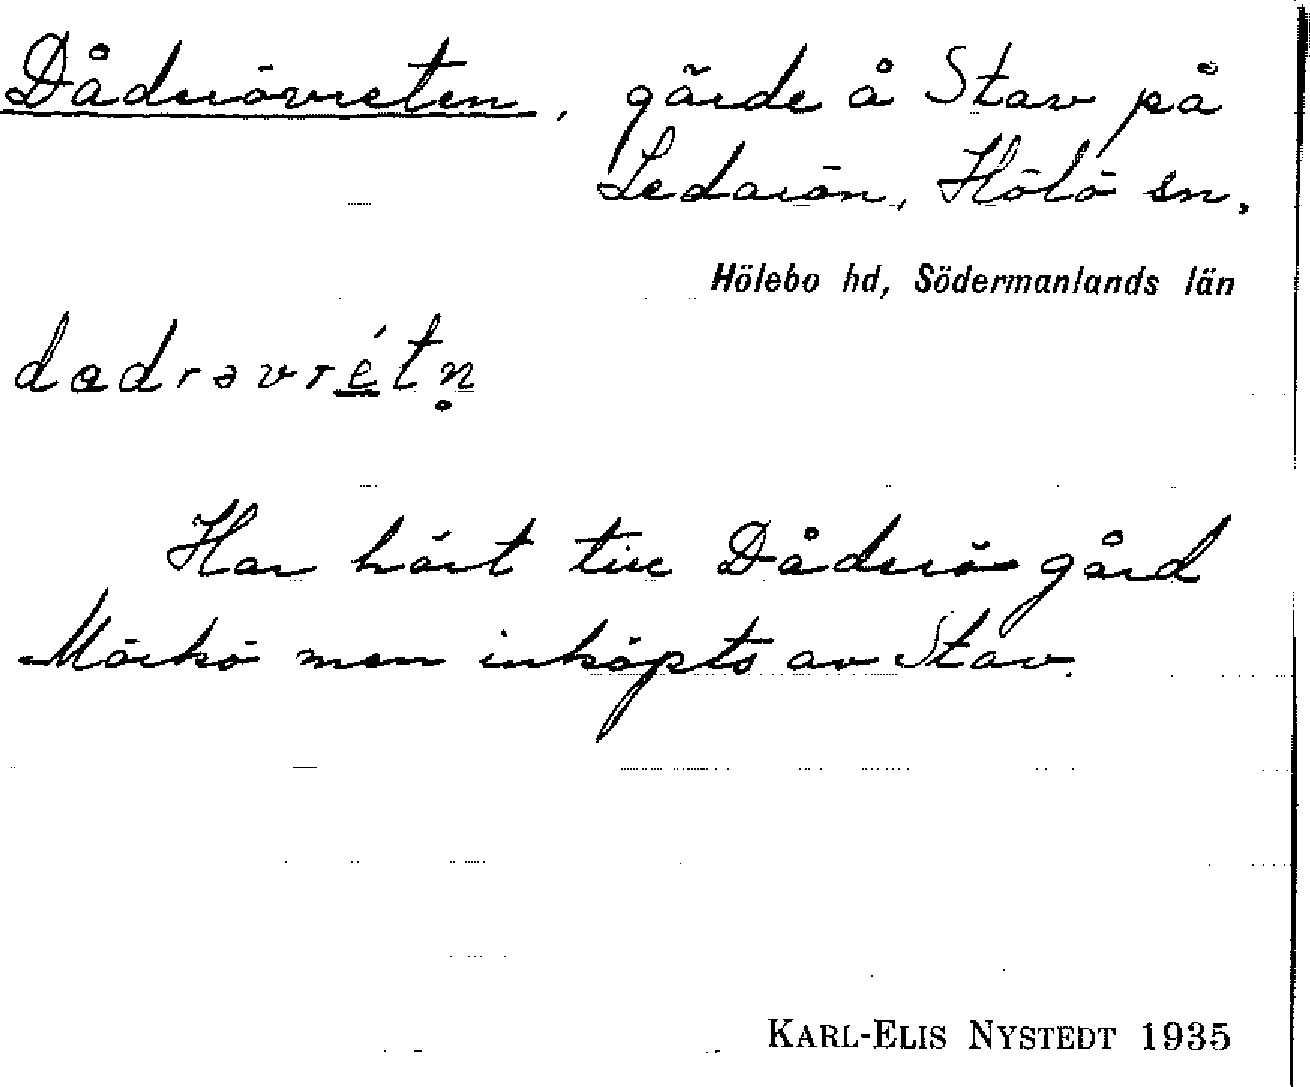 Dåderövreten, gärde å Stav på
Ledarön, Hölö sn.
Hölebo hd, Södermanlands län
dadrəvrétn̥
Har hört till Dåderö gård
Mörkö men inköpts av Stav.
KARL-ELIS NYSTEDT 1935